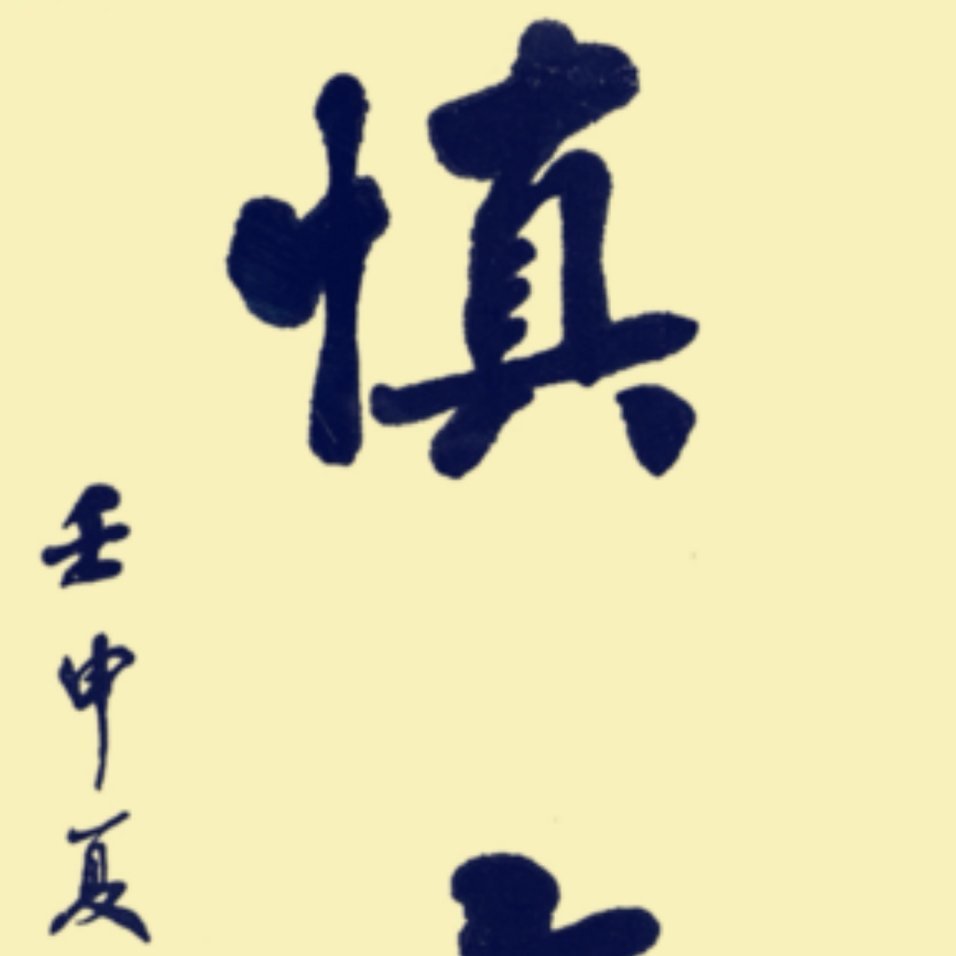 慎
壬申夏